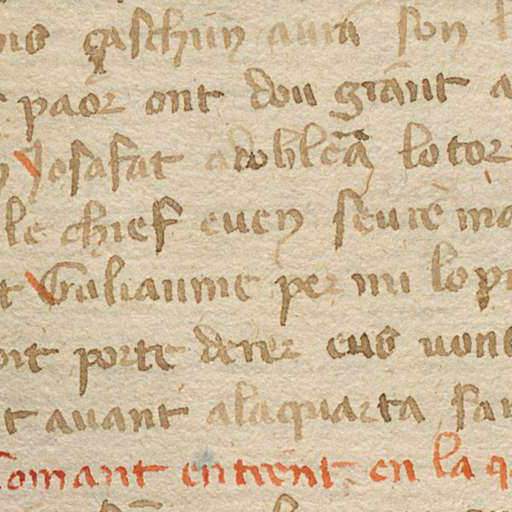 gaschun aura son
paor ont dou grant a
Josafat adobleça lo tor
le chief euen seure
Guliaume per mi lo p
oit porte derer eus uont
t auant alaquarta
Comant entrent en la q